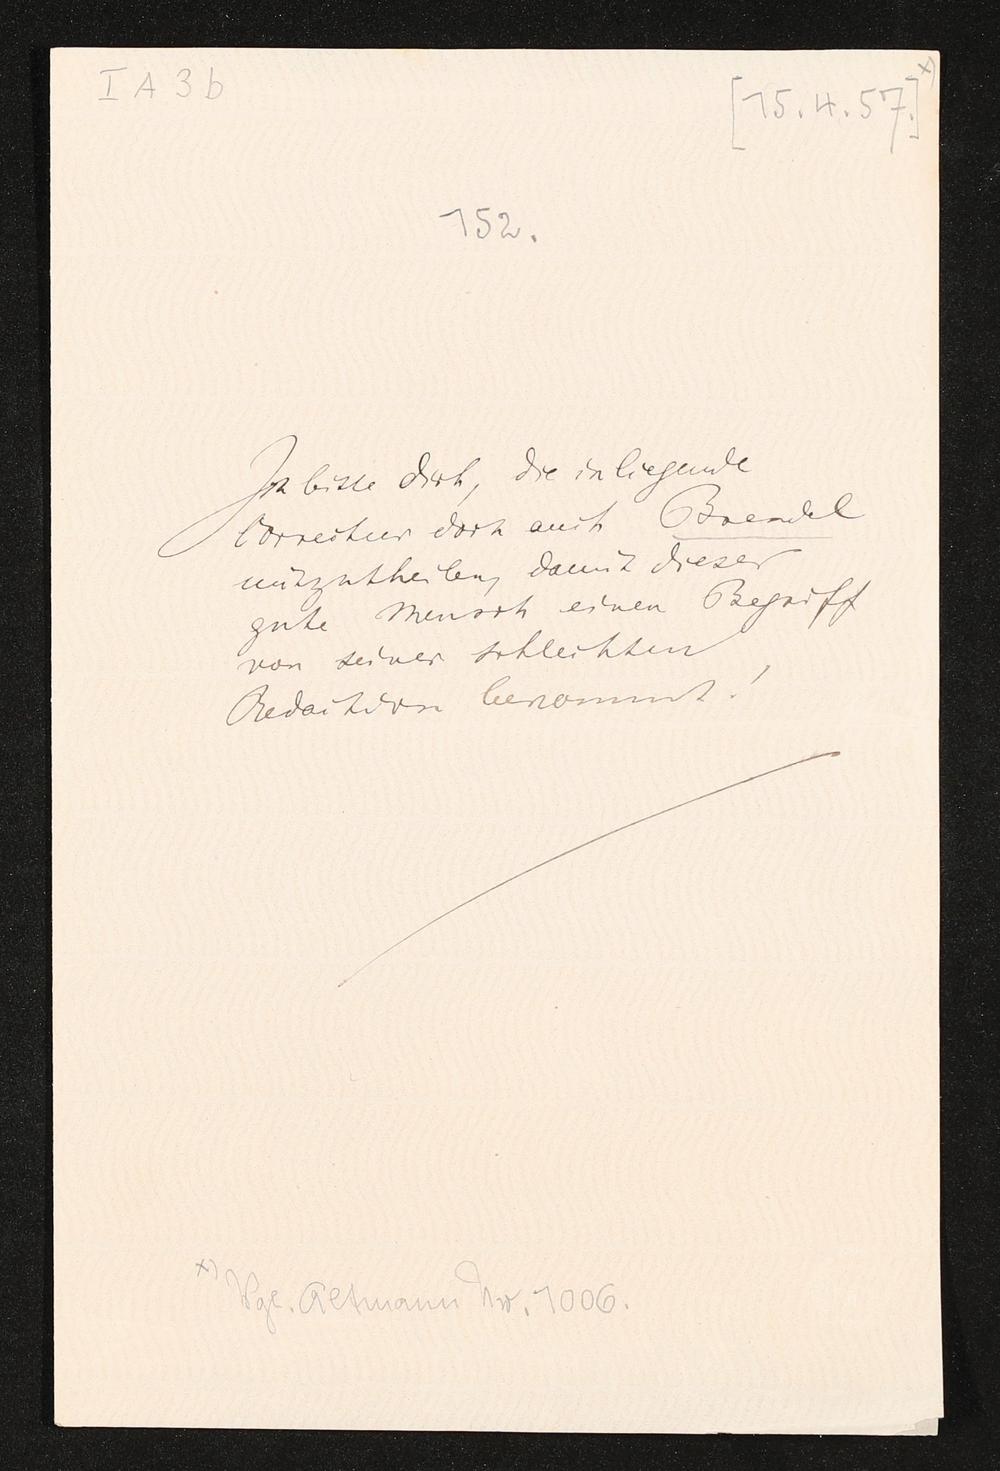 I A 3 b
[15.4.57.] x)
152.
Ich bitte dich, die inliegende
Correctur doch auch Brendel
mitzutheilen, damit dieser
gute Mensch einen Begriff
von seiner schlechten
Redaction bekommt!
x) Vgl. Altmann Nr. 1006.